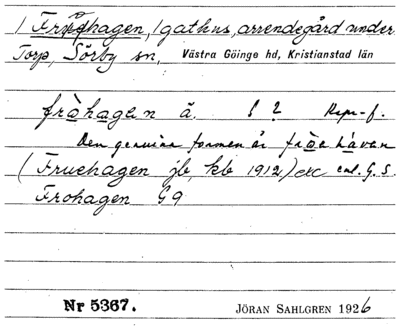 1 Fruehagen, 1 gathus, arrendegård under
Torp, Sörby sn, Västra Göinge hd, Kristianstad län
fròhagen ä. § ? Repr-f.
Den genuina formen är
(Fruehagen jb, kb 1912) etc enl. G. S.
Frohagen G9
Nr 5367. JÖRAN SAHLGREN 1926